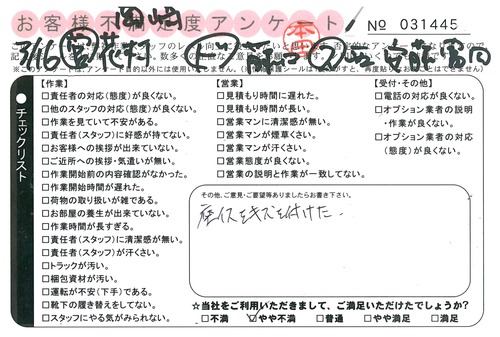 お客様不満足度アンケート
№ 031445
岡崎
本
3/16
チェックリスト
【作業】
□責任者の対応(態度)が良くない。
□他のスタッフの対応(態度)が良くない。
□作業を見ていて不安がある。
□責任者(スタッフ)に好感が持てない。
□お客様への挨拶が出来ていない。
□ご近所への挨拶・気遣いが無い。
□作業開始前の内容確認がなかった。
□作業開始時間が遅れた。
□荷物の取り扱いが雑である。
□お部屋の養生が出来ていない。
□作業時間が長すぎる。
□責任者(スタッフ)に清潔感が無い。
□責任者(スタッフ)が汗くさい。
□トラックが汚い。
□梱包資材が汚い。
□運転が不安(下手)である。
□靴下の履き替えをしてない。
□スタッフにやる気がみられない。
【営業】
□見積もりに遅れた。
□見積もり時間が長い。
□営業マンに清潔感が無い。
□営業マンが煙草くさい。
□営業マンが汗くさい。
□営業態度が良くない。
□営業の説明と作業が一致してない。
【受付・その他】
□電話の対応が良くない。
□オプション業者の説明
・作業が良くない。
□オプション業者の対応
(態度)が良くない。
その他、ご意見・ご要望等ありましたらお書き下さい。
座イスをキズを付けた。
☆当社をご利用いただきまして、ご満足いただけたでしょうか?
□不満 ☑やや不満 □普通 □やや満足 □満足